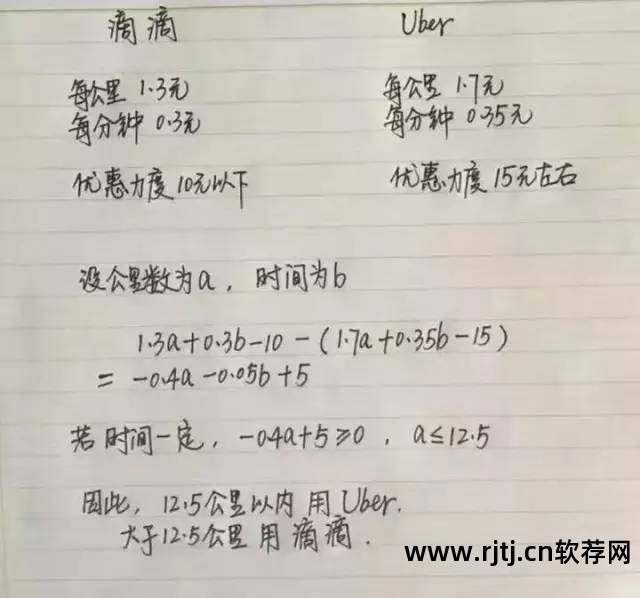 滴滴 Uber
每公里 1.3元 每公里 1.7元
每分钟 0.3元 每分钟 0.35元
优惠力度10元以下 优惠力度15元左右
设公里数为a，时间为b
1.3a+0.3b-10-(1.7a+0.35b-15)
= -0.4a-0.05b+5
若时间一定，-0.4a+5≥0，a≤12.5
因此，12.5公里以内用Uber.
大于12.5公里用滴滴.
www.rjtj.cn软荐网